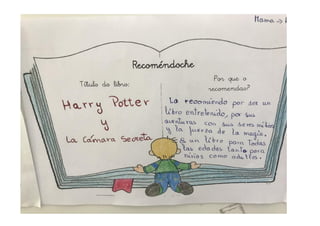 Mama →
Recoméndoche
Título do libro:
Harry Potter
y
La Cámara Secreta
Por que o
recomendas?
Lo recomiendo por ser un
libro entretenido, por sus
aventuras con sus seres míticos
y la fuerza de la magia.
Es un libro para todas
las edades tanto para
niños como adultos.